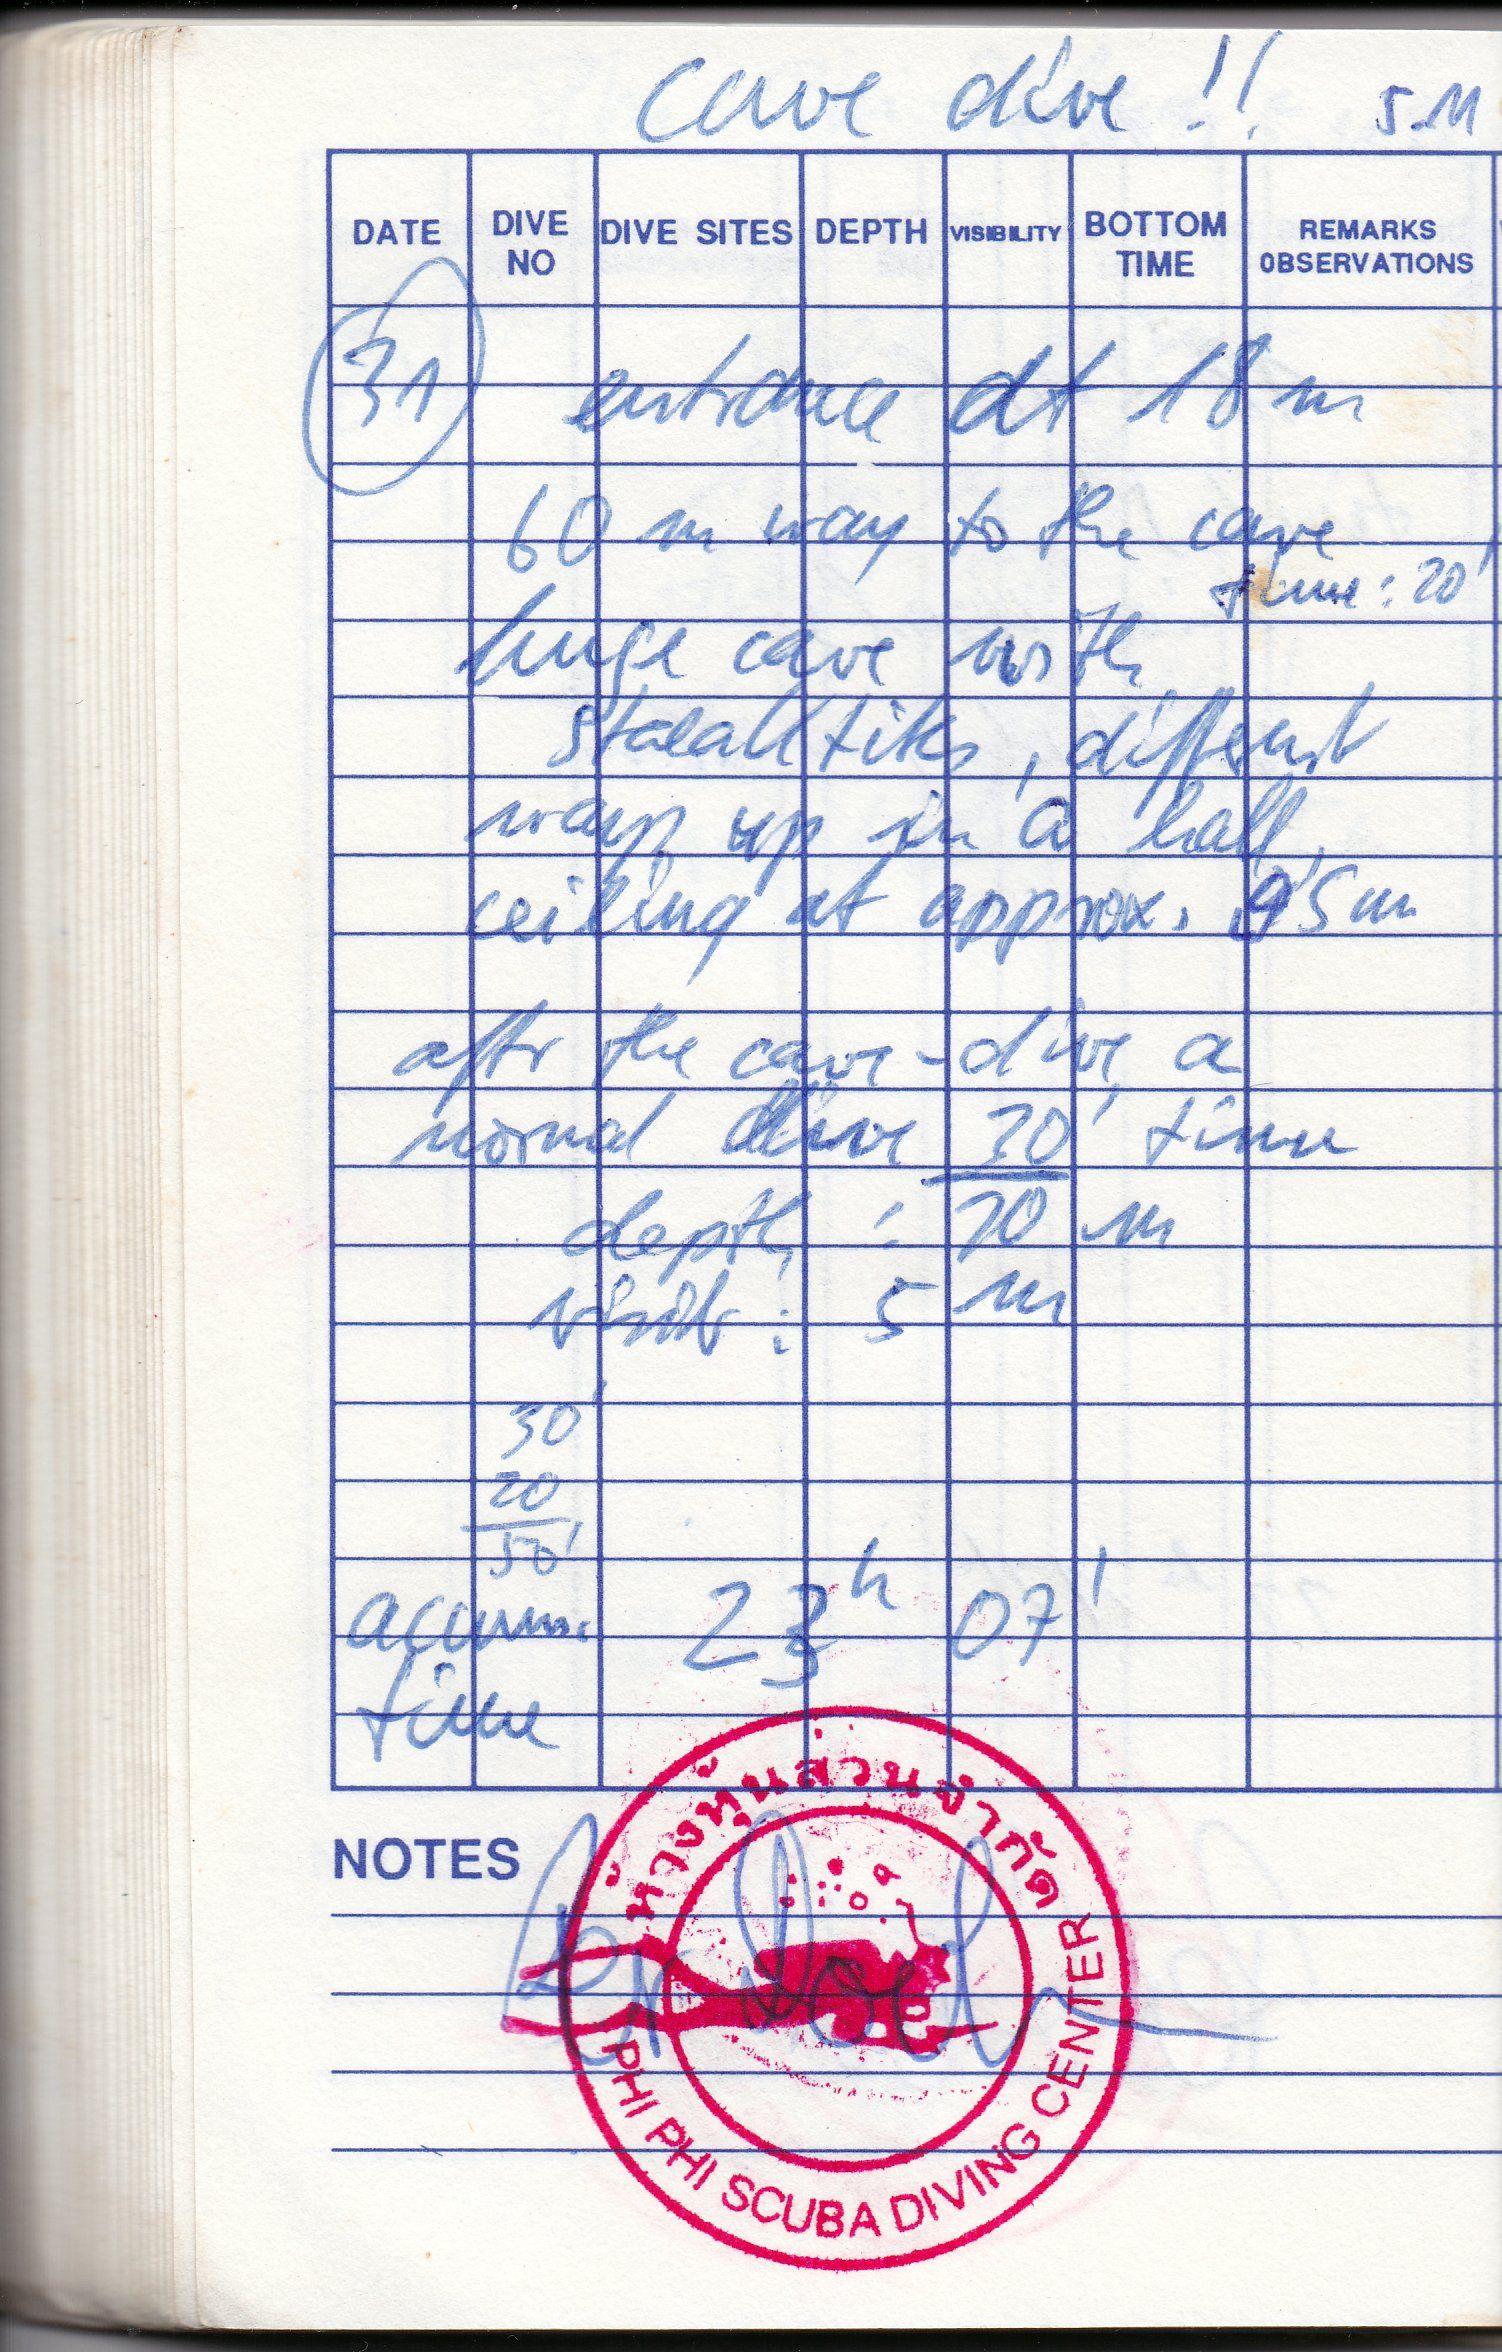 cave dive !! 5.11
DATE DIVE NO DIVE SITES DEPTH VISIBILITY BOTTOM TIME REMARKS OBSERVATIONS
31 entrance at 18 m
60 m way to the cave
time: 20'
huge cave with
stalaktiks, different
ways up in a hall,
ceiling at approx. 95m
after the cave-dive a
normal dive 30' time
depth : 20 m
visib: 5 m
30'
20
50'
accum. 23h 07'
time
NOTES
ห้างหุ้นส่วนจำกัด
PHI PHI SCUBA DIVING CENTER